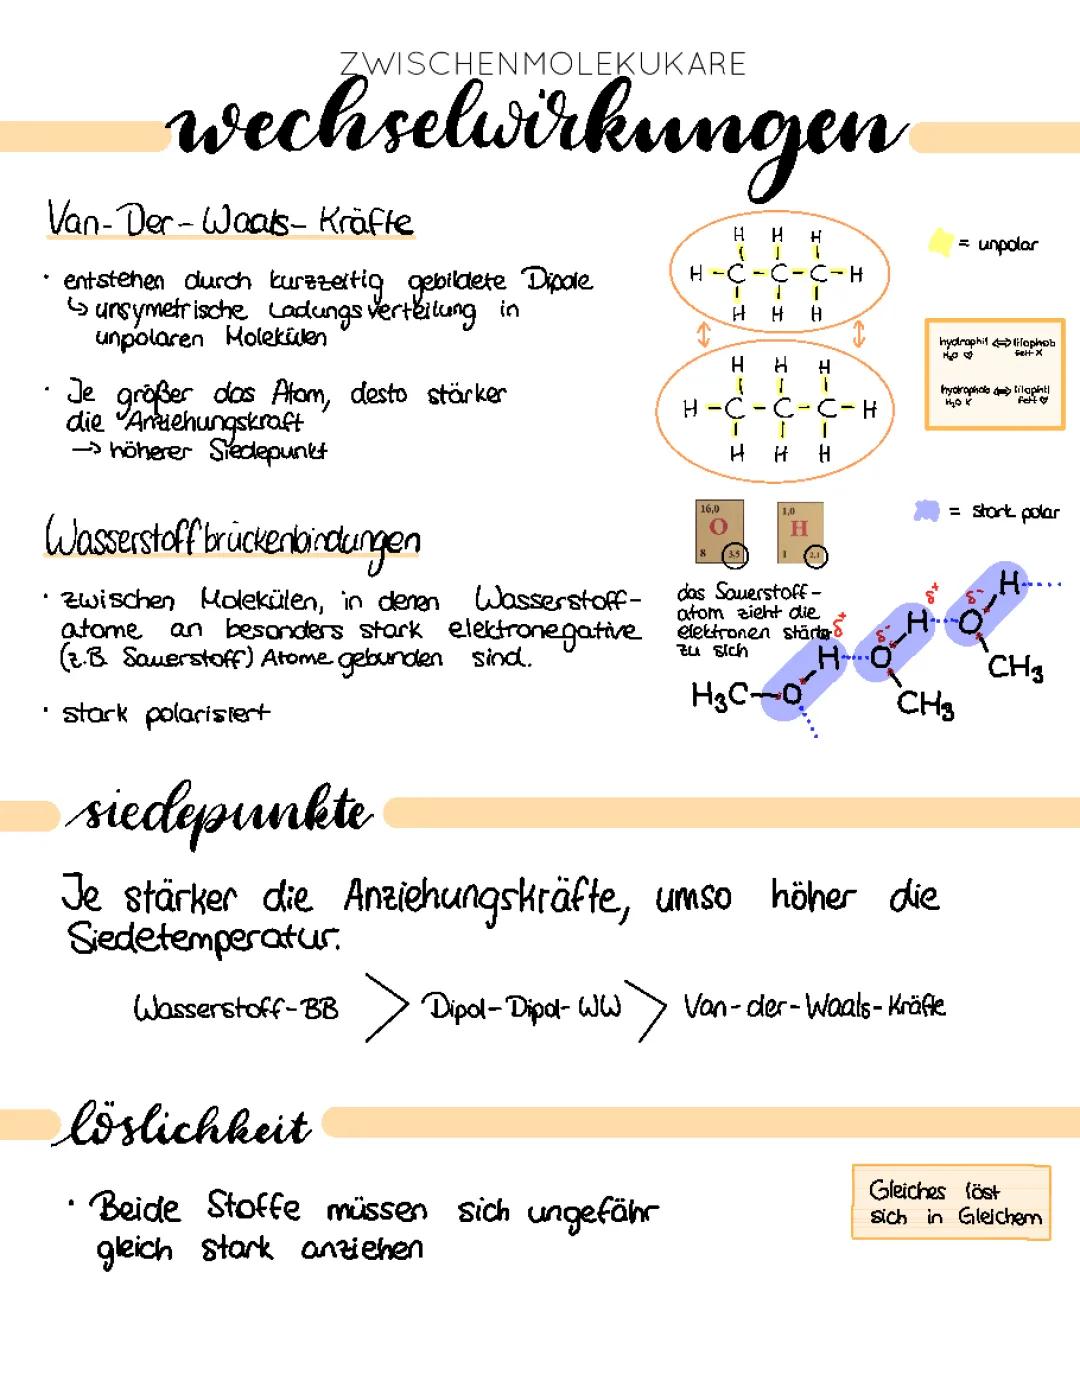 ZWISCHENMOLEKUKARE
wechselwirkungen
Van-Der-Waals-Kräfte
· entstehen durch kurzzeitig gebildete Dipole
↳ unsymetrische Ladungsverteilung in
unpolaren Molekülen
· Je größer das Atom, desto stärker
die Anziehungskraft
→ höherer Siedepunkt
H H H
H-C-C-C-H
H H H
H H H
H-C-C-C-H
H H H
= unpolar
hydrophil ⇔ lipophob
H₂O ♡ Fett X
hydrophob ⇔ lipophil
H₂O X Fett ♡
Wasserstoffbrückenbindungen
· zwischen Molekülen, in denen Wasserstoff-
atome an besonders stark elektronegative
(z.B. Sauerstoff) Atome gebunden sind.
· stark polarisiert
16,0
O
8 3,5
1,0
H
1 2,1
= stark polar
das Sauerstoff-
atom zieht die
elektronen stärker
zu sich
δ+ δ- δ+ δ-
H
H O
H O CH₃
H₃C-O CH₃
siedepunkte
Je stärker die Anziehungskräfte, umso höher die
Siedetemperatur.
Wasserstoff-BB > Dipol-Dipol-WW > Van-der-Waals-Kräfte
löslichkeit
· Beide Stoffe müssen sich ungefähr
gleich stark anziehen
Gleiches löst
sich in Gleichem